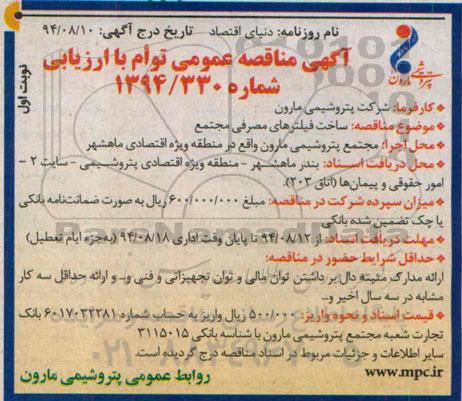 نام روزنامه: دنیای اقتصاد تاریخ درج آگهی: ۹۴/۰۸/۱۰
پتروشیمی مارون
نوبت اول
آگهی مناقصه عمومی توأم با ارزیابی
شماره ۱۳۹۴/۳۳۰
کارفرما: شرکت پتروشیمی مارون
موضوع مناقصه: ساخت فیلترهای مصرفی مجتمع
محل اجرا: مجتمع پتروشیمی مارون واقع در منطقه ویژه اقتصادی ماهشهر
محل دریافت اسـناد: بندر ماهشـهر - منطقه ویژه اقتصادی پتروشـیمی - سایت ۲ -
امور حقوقی و پیمان‌ها (اتاق ۲۰۳).
میزان سپرده شرکت در مناقصه: مبلغ ۶۰۰/۰۰۰/۰۰۰ ریال به صورت ضمانت‌نامه بانکی
یا چک تضمین شده بانکی
مهلت دریافت اسناد: از ۹۴/۰۸/۱۲ تا پایان وقت اداری ۹۴/۰۸/۱۸ (به‌جزء ایام تعطیل)
حداقل شرایط حضور در مناقصه:
ارائه مدارک مثبته دال بر داشتن توان مالی و توان تجهیزاتی و فنی و.. و ارائه حداقل سه کار
مشابه در سه سال اخیر و..
قیمت اسناد و نحوه واریز: ۵۰۰/۰۰۰ ریال واریز به حساب شماره ۶۰۱۷۰۳۲۲۸۱ بانک
تجارت شعبه مجتمع پتروشیمی مارون با شناسه بانکی ۳۱۱۵۰۱۵
سایر اطلاعات و جزئیات مربوط در اسناد مناقصه درج گردیده است.
www.mpc.ir
روابط عمومی پتروشیمی مارون